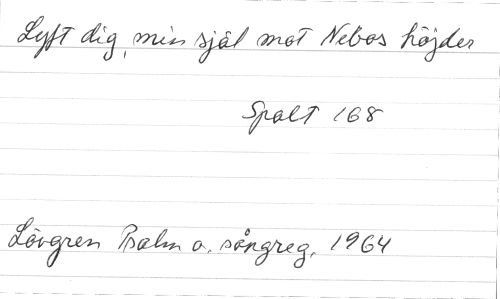 Lyft dig, min själ mot Nebos höjder
Spalt 168
Lövgren Psalm o. sångreg. 1964